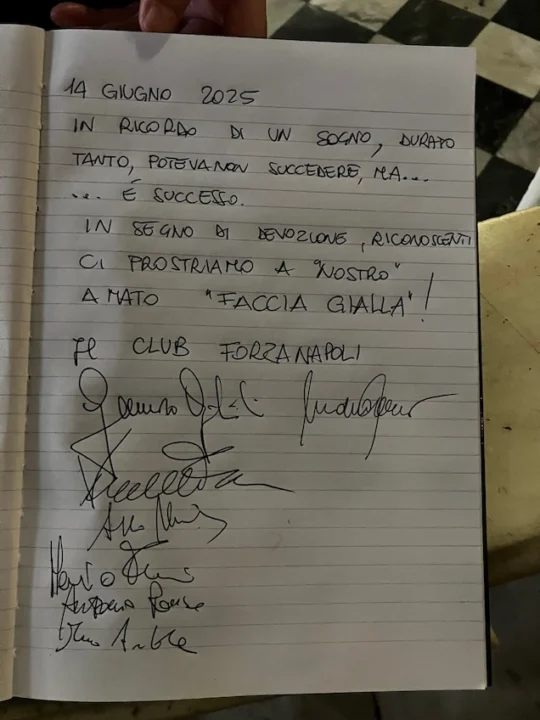 14 GIUGNO 2025
IN RICORDO DI UN SOGNO, DURATO
TANTO, POTEVA NON SUCCEDERE, MA...
... É SUCCESSO.
IN SEGNO DI DEVOZIONE, RICONOSCENTI
CI PROSTRIAMO A "NOSTRO"
AMATO "FACCIA GIALLA"!
Il CLUB FORZA NAPOLI
Antonio